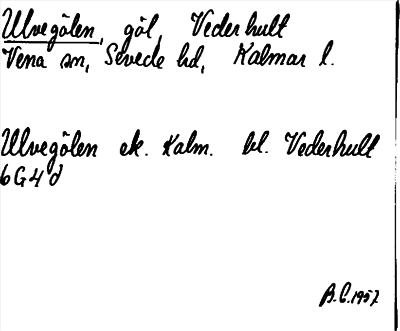 Ulvegölen, göl, Vederhult
Vena sn, Sevede hd, Kalmar l.
Ulvegölen ek. Kalm. bl. Vederhult
6G4d
B.E. 1957